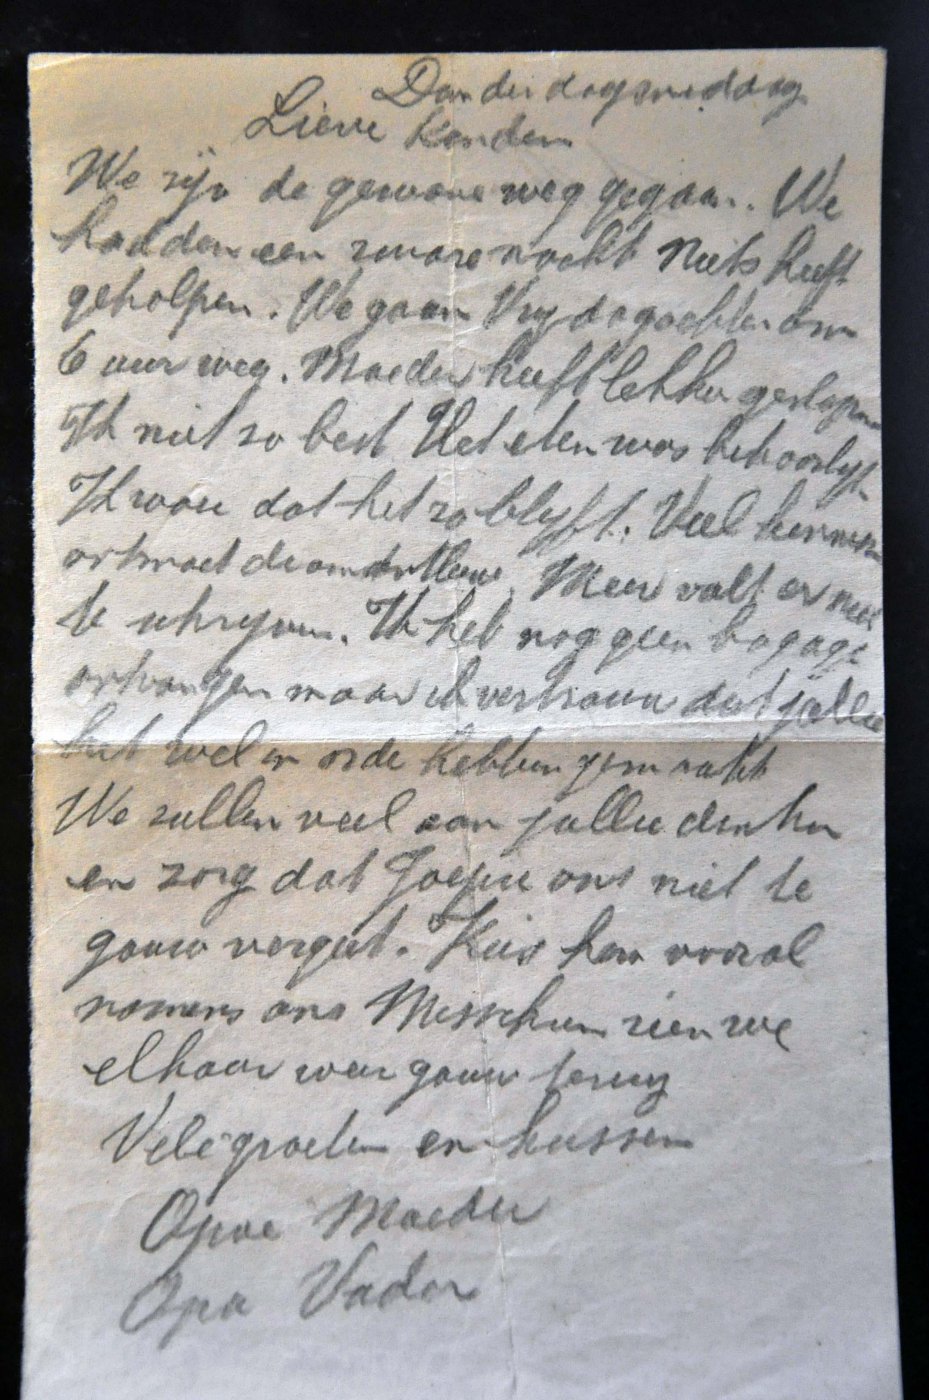 Donderdagmiddag
Lieve Kinderen
We zijn de gewone weg gegaan. We
hadden een zware nacht Niets heeft
geholpen. We gaan Vrydagochten om
6 uur weg. Moeder heeft lekker geslapen
Ik niet zo best Het eten was behoorlyk
Ik wou dat het zo blyft. Veel kennissen
ontmoet Meer valt er niet
te schryven. Ik heb nog geen bagage
ontvangen maar ik vertrouw dat jullie
het wel in orde hebben gemaakt
We zullen veel aan jullie denken
en zorg dat Joepie ons niet te
gauw vergeet. Kus hem vooral
namens ons Misschien zien we
elkaar weer gauw terug
Vele groeten en kussen
Opoe Moeder
Opa Vader